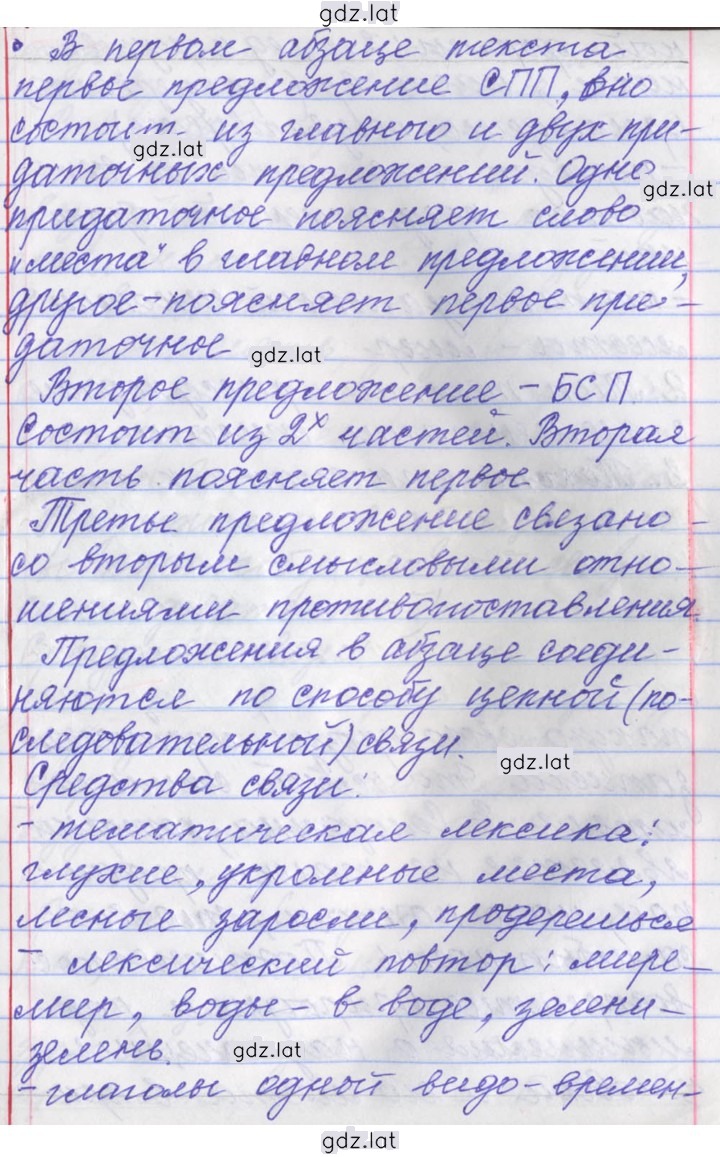 gdz.lat
В первом абзаце текста
первое предложение СПП, оно
состоит из главного и двух при-
gdz.lat
даточных предложений. Одно
gdz.lat
придаточное поясняет слово
„места" в главном предложении,
другое - поясняет первое при-
даточное
gdz.lat
Второе предложение - БСП
Состоит из 2х частей. Вторая
часть поясняет первое.
Третье предложение связано
со вторым смысловыми отно-
шениями противопоставления.
Предложения в абзаце соеди-
няются по способу цепной (по-
следовательной) связи.
gdz.lat
Средства связи:
- тематическая лексика:
глухие, укромные места,
лесные заросли, продерешься
- лексический повтор: мире-
мир, воды - в воде, зелени-
зелень.
gdz.lat
- глаголы одной видо-времен-
gdz.lat